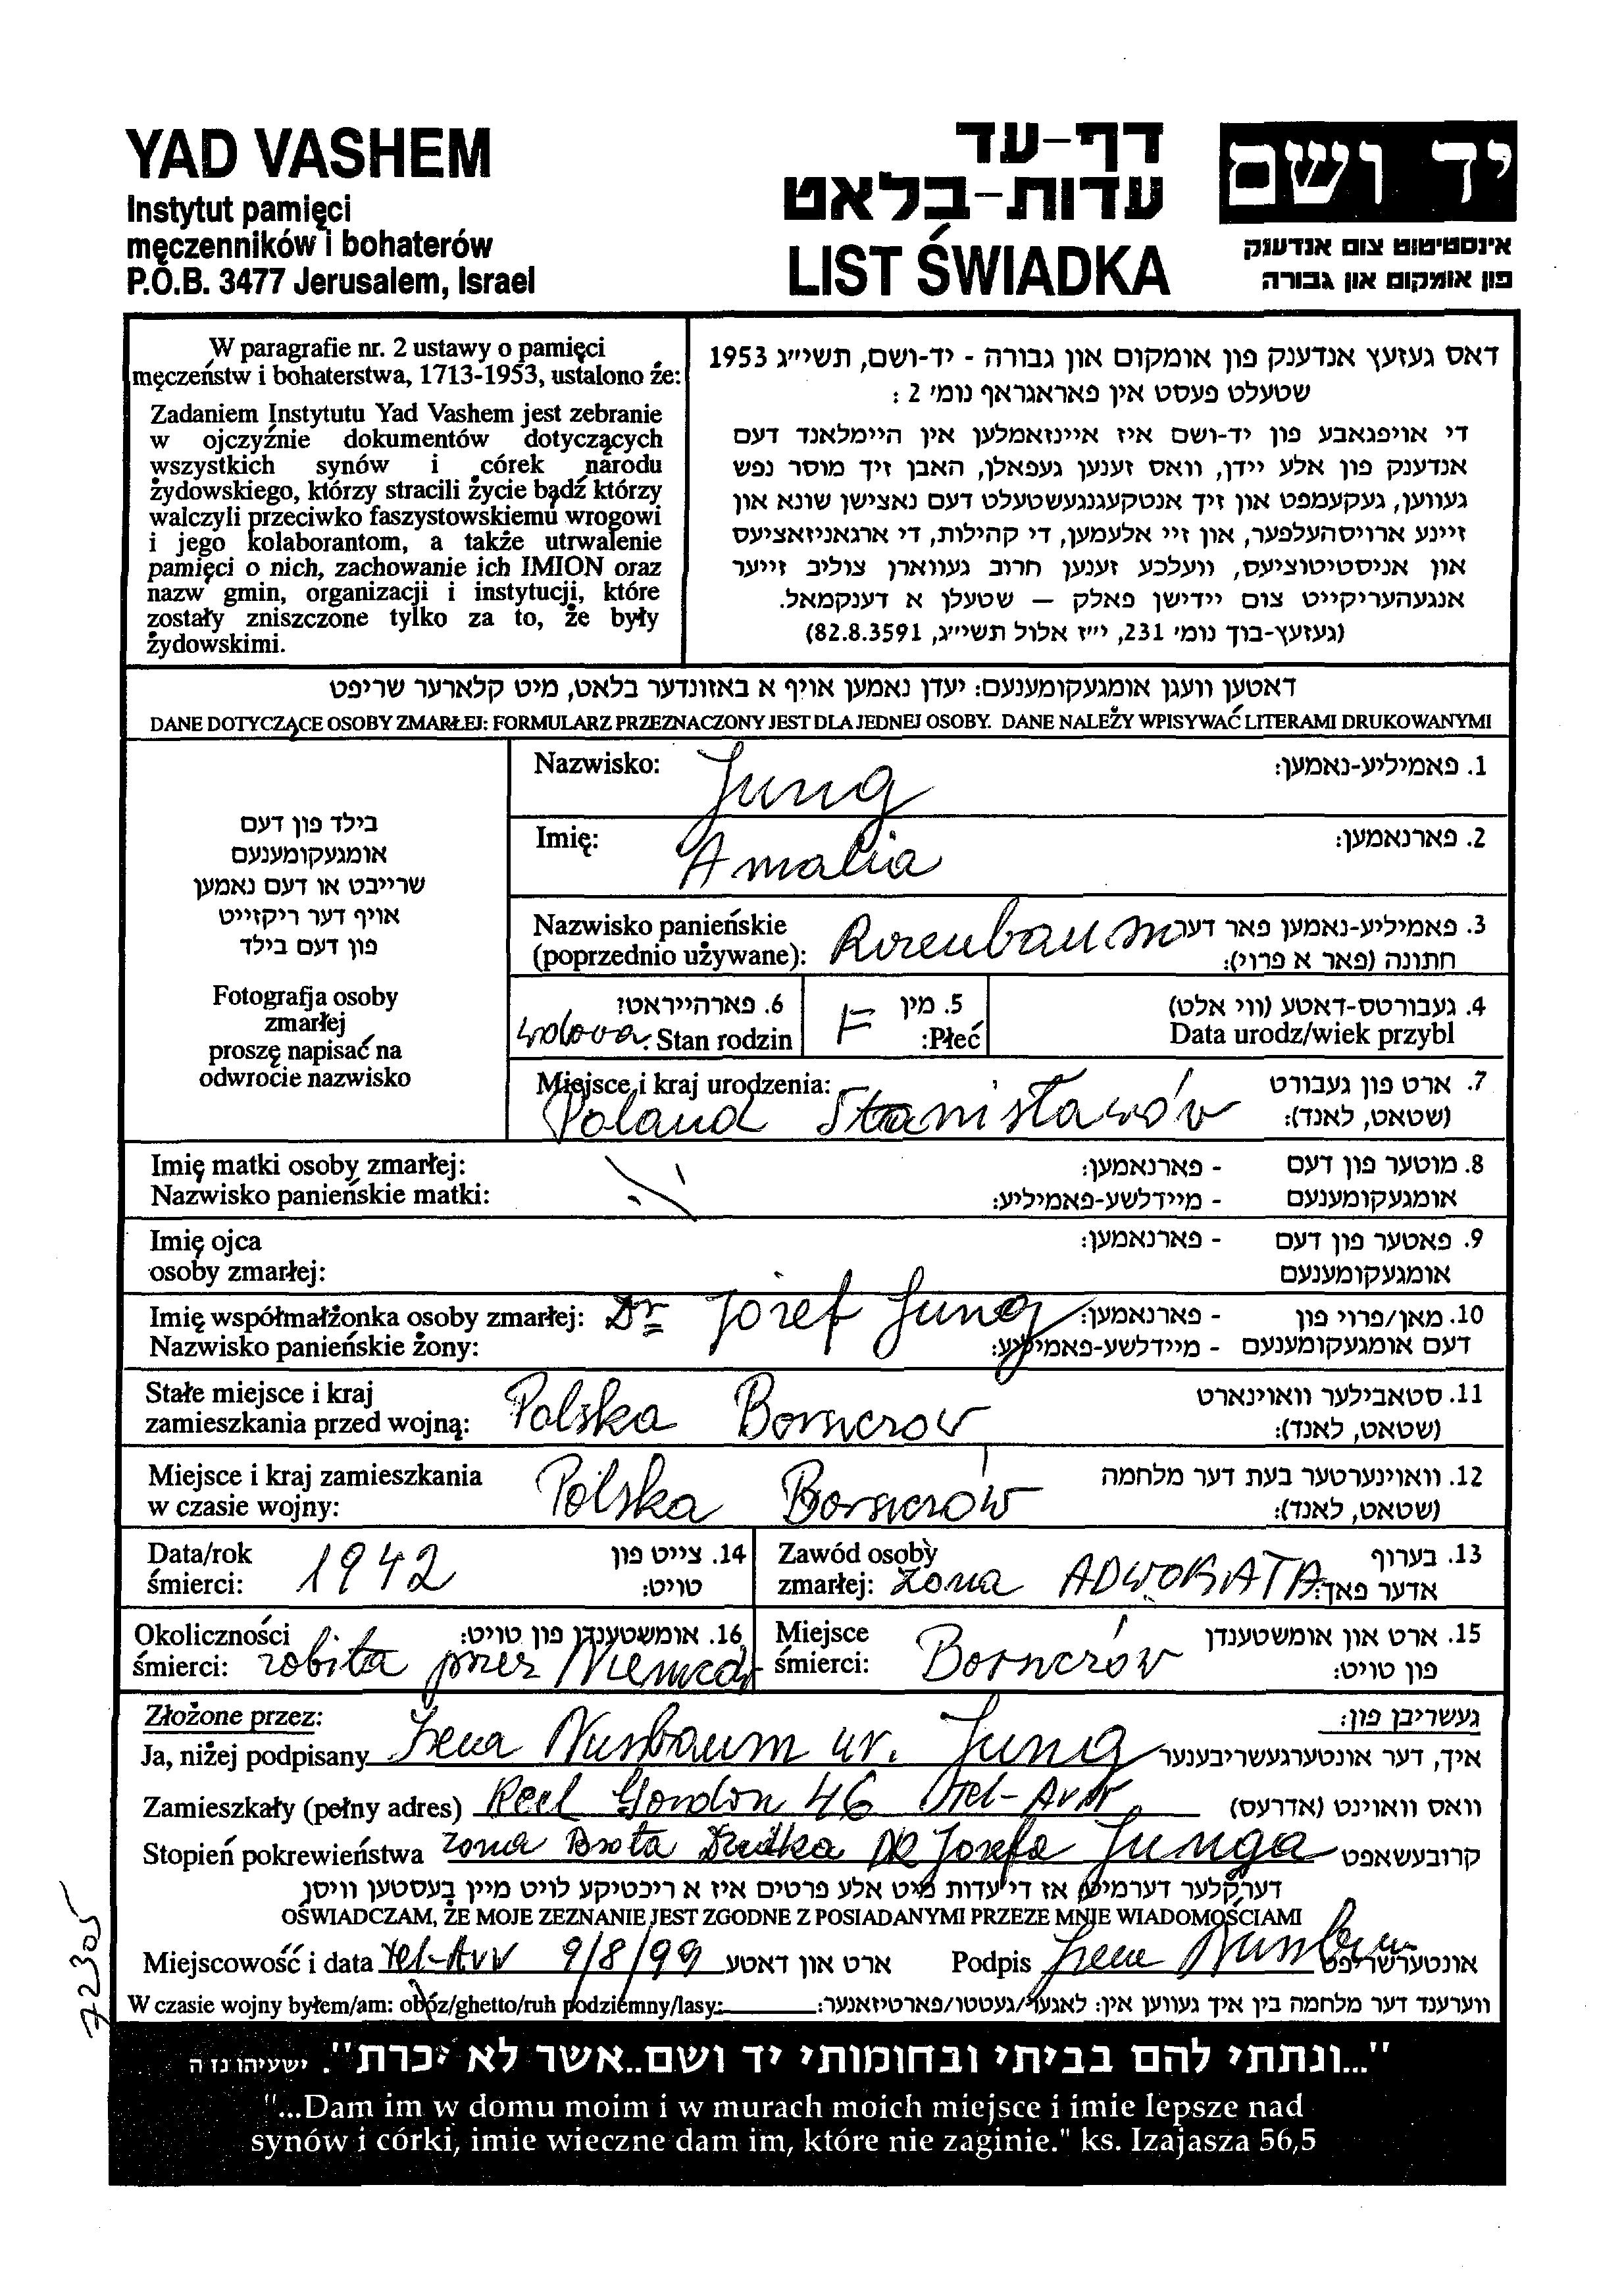 YAD VASHEM
Instytut pamięci
męczenników i bohaterów
P.O.B. 3477 Jerusalem, Israel
דף-עד
עדות-בלאט
LIST ŚWIADKA
יד ושם
אינסטיטוט צום אנדענק
פון אומקום און גבורה
W paragrafie nr. 2 ustawy o pamięci
męczeństw i bohaterstwa, 1713-1953, ustalono że:
Zadaniem Instytutu Yad Vashem jest zebranie
w ojczyźnie dokumentów dotyczących
wszystkich synów i córek narodu
żydowskiego, którzy stracili życie bądź którzy
walczyli przeciwko faszystowskiemu wrogowi
i jego kolaborantom, a także utrwalenie
pamięci o nich, zachowanie ich IMION oraz
nazw gmin, organizacji i instytucji, które
zostały zniszczone tylko za to, że były
żydowskimi.
דאס געזעץ אנדענק פון אומקום און גבורה - יד-ושם, תשי״ג 1953
שטעלט פעסט אין פאראגראף נומ׳ 2 :
די אויפגאבע פון יד-ושם איז איינזאמלען אין היימלאנד דעם
אנדענק פון אלע יידן, וואס זענען געפאלן, האבן זיך מוסר נפש
געווען, געקעמפט און זיך אנטקעגנגעשטעלט דעם נאצישן שונא און
זיינע ארויסהעלפער, און זיי אלעמען, די קהילות, די ארגאניזאציעס
און אניסטיטוציעס, וועלכע זענען חרוב געווארן צוליב זייער
אנגעהעריקייט צום יידישן פאלק – שטעלן א דענקמאל.
(געזעץ-בוך נומ׳ 231, י״ז אלול תשי״ג, 82.8.3591)
דאטען וועגן אומגעקומענעם: יעדן נאמען אויף א באזונדער בלאט, מיט קלארער שריפט
DANE DOTYCZĄCE OSOBY ZMARŁEJ: FORMULARZ PRZEZNACZONY JEST DLA JEDNEJ OSOBY. DANE NALEŻY WPISYWAĆ LITERAMI DRUKOWANYMI
בילד פון דעם
אומגעקומענעם
שרייבט או דעם נאמען
אויף דער ריקזייט
פון דעם בילד
Fotografja osoby
zmarłej
proszę napisać na
odwrocie nazwisko
Nazwisko: Jung 1. פאמיליע-נאמען:
Imię: Amalia 2. פארנאמען:
Nazwisko panieńskie 3. פאמיליע-נאמען פאר דער
(poprzednio używane): Rozenbaum חתונה (פאר א פרוי):
6. פארהייראט? 5. מין 4. געבורטס-דאטע (ווי אלט)
Stan rodzin: F Płeć: Data urodz/wiek przybl
Miejsce i kraj urodzenia: 7. ארט פון געבורט
Poland Stanisławów (שטאט, לאנד):
Imię matki osoby zmarłej: - פארנאמען: 8. מוטער פון דעם
Nazwisko panieńskie matki: - מיידלשע-פאמיליע: אומגעקומענעם
Imię ojca - פארנאמען: 9. פאטער פון דעם
osoby zmarłej: אומגעקומענעם
Imię współmałżonka osoby zmarłej: Dr Jozef Jung - פארנאמען: 10. מאן/פרוי פון
Nazwisko panieńskie żony: - מיידלשע-פאמיליע: דעם אומגעקומענעם
Stałe miejsce i kraj 11. סטאבילער וואוינארט
zamieszkania przed wojną: Polska Borszczow (שטאט, לאנד):
Miejsce i kraj zamieszkania 12. וואוינערטער בעת דער מלחמה
w czasie wojny: Polska Borszczów (שטאט, לאנד):
Data/rok 14. צייט פון Zawód osoby 13. בערוף
śmierci: 1942 טויט: zmarłej: żona ADWOKATA אדער פאך:
Okoliczności 16. אומשטענדן פון טויט: Miejsce 15. ארט און אומשטענדן
śmierci: zobita przez Niemców śmierci: Borszczów פון טויט:
Złożone przez: געשריבן פון:
Ja, niżej podpisany Irena Nusbaum ur. Jung איך, דער אונטערגעשריבענער
Zamieszkały (pełny adres) Gordon 46 Tel-Aviv וואס וואוינט (אדרעס)
Stopień pokrewieństwa żona Brata Dziadka DR Jozefa Junga קרובעשאפט
דערקלער דערמיט, אז די עדות מיט אלע פרטים איז א ריכטיקע לויט מיין בעסטען וויסן
OŚWIADCZAM, ŻE MOJE ZEZNANIE JEST ZGODNE Z POSIADANYMI PRZEZE MNIE WIADOMOŚCIAMI
Miejscowość i data Tel-Aviv 9/8/99 ארט און דאטע Podpis Irena Nusbaum אונטערשריפט
W czasie wojny byłem/am: obóz/ghetto/ruh podziemny/lasy: ווערענד דער מלחמה בין איך געווען אין: לאגער/געטטו/פארטיזאנער:
72305
"...ונתתי להם בביתי ובחומותי יד ושם..אשר לא יכרת". ישעיהו נז ה
"...Dam im w domu moim i w murach moich miejsce i imie lepsze nad
synów i córki, imie wieczne dam im, które nie zaginie." ks. Izajasza 56,5